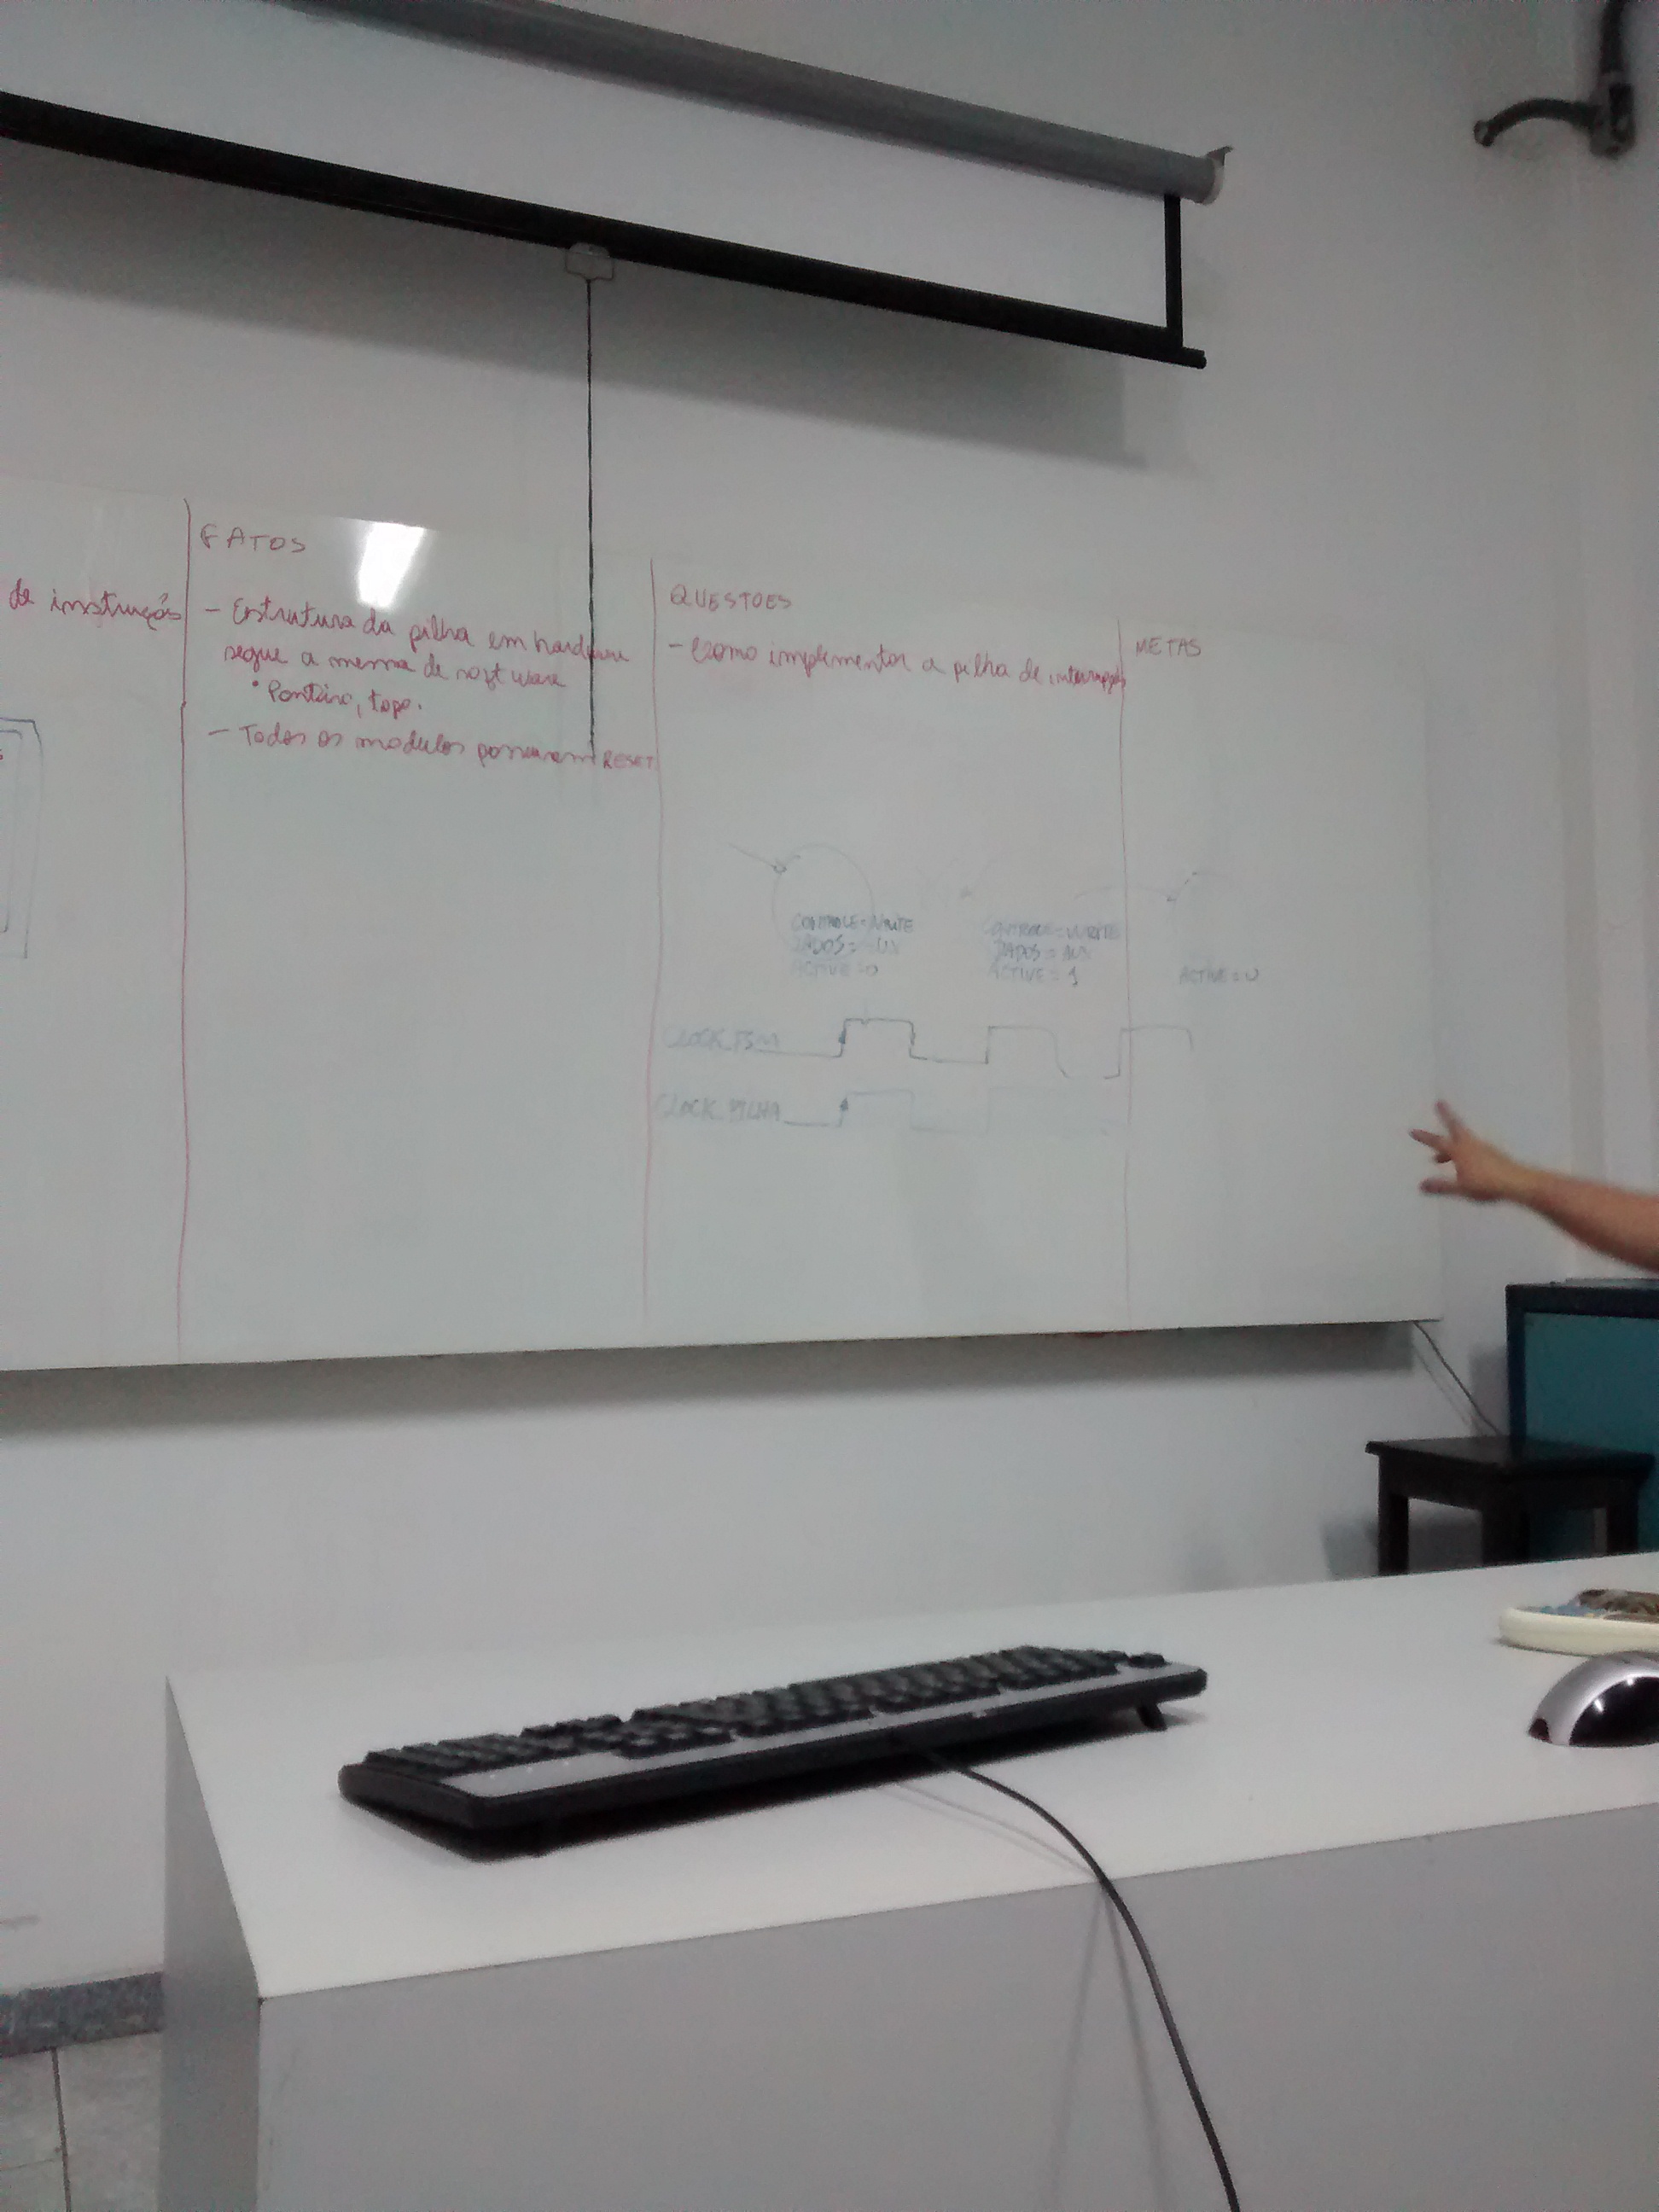 de instruções
FATOS
- Estrutura da pilha em hardware
segue a mesma de software
• Ponteiro, topo.
- Todos os modulos possuiram RESET
QUESTOES
- Como implementar a pilha de interrupções
METAS
CONTROLE=WRITE
DADOS=
ACTIVE=0
CONTROLE=WRITE
DADOS = AUX
ACTIVE = 1
ACTIVE = 0
CLOCK_FSM
CLOCK_PILHA